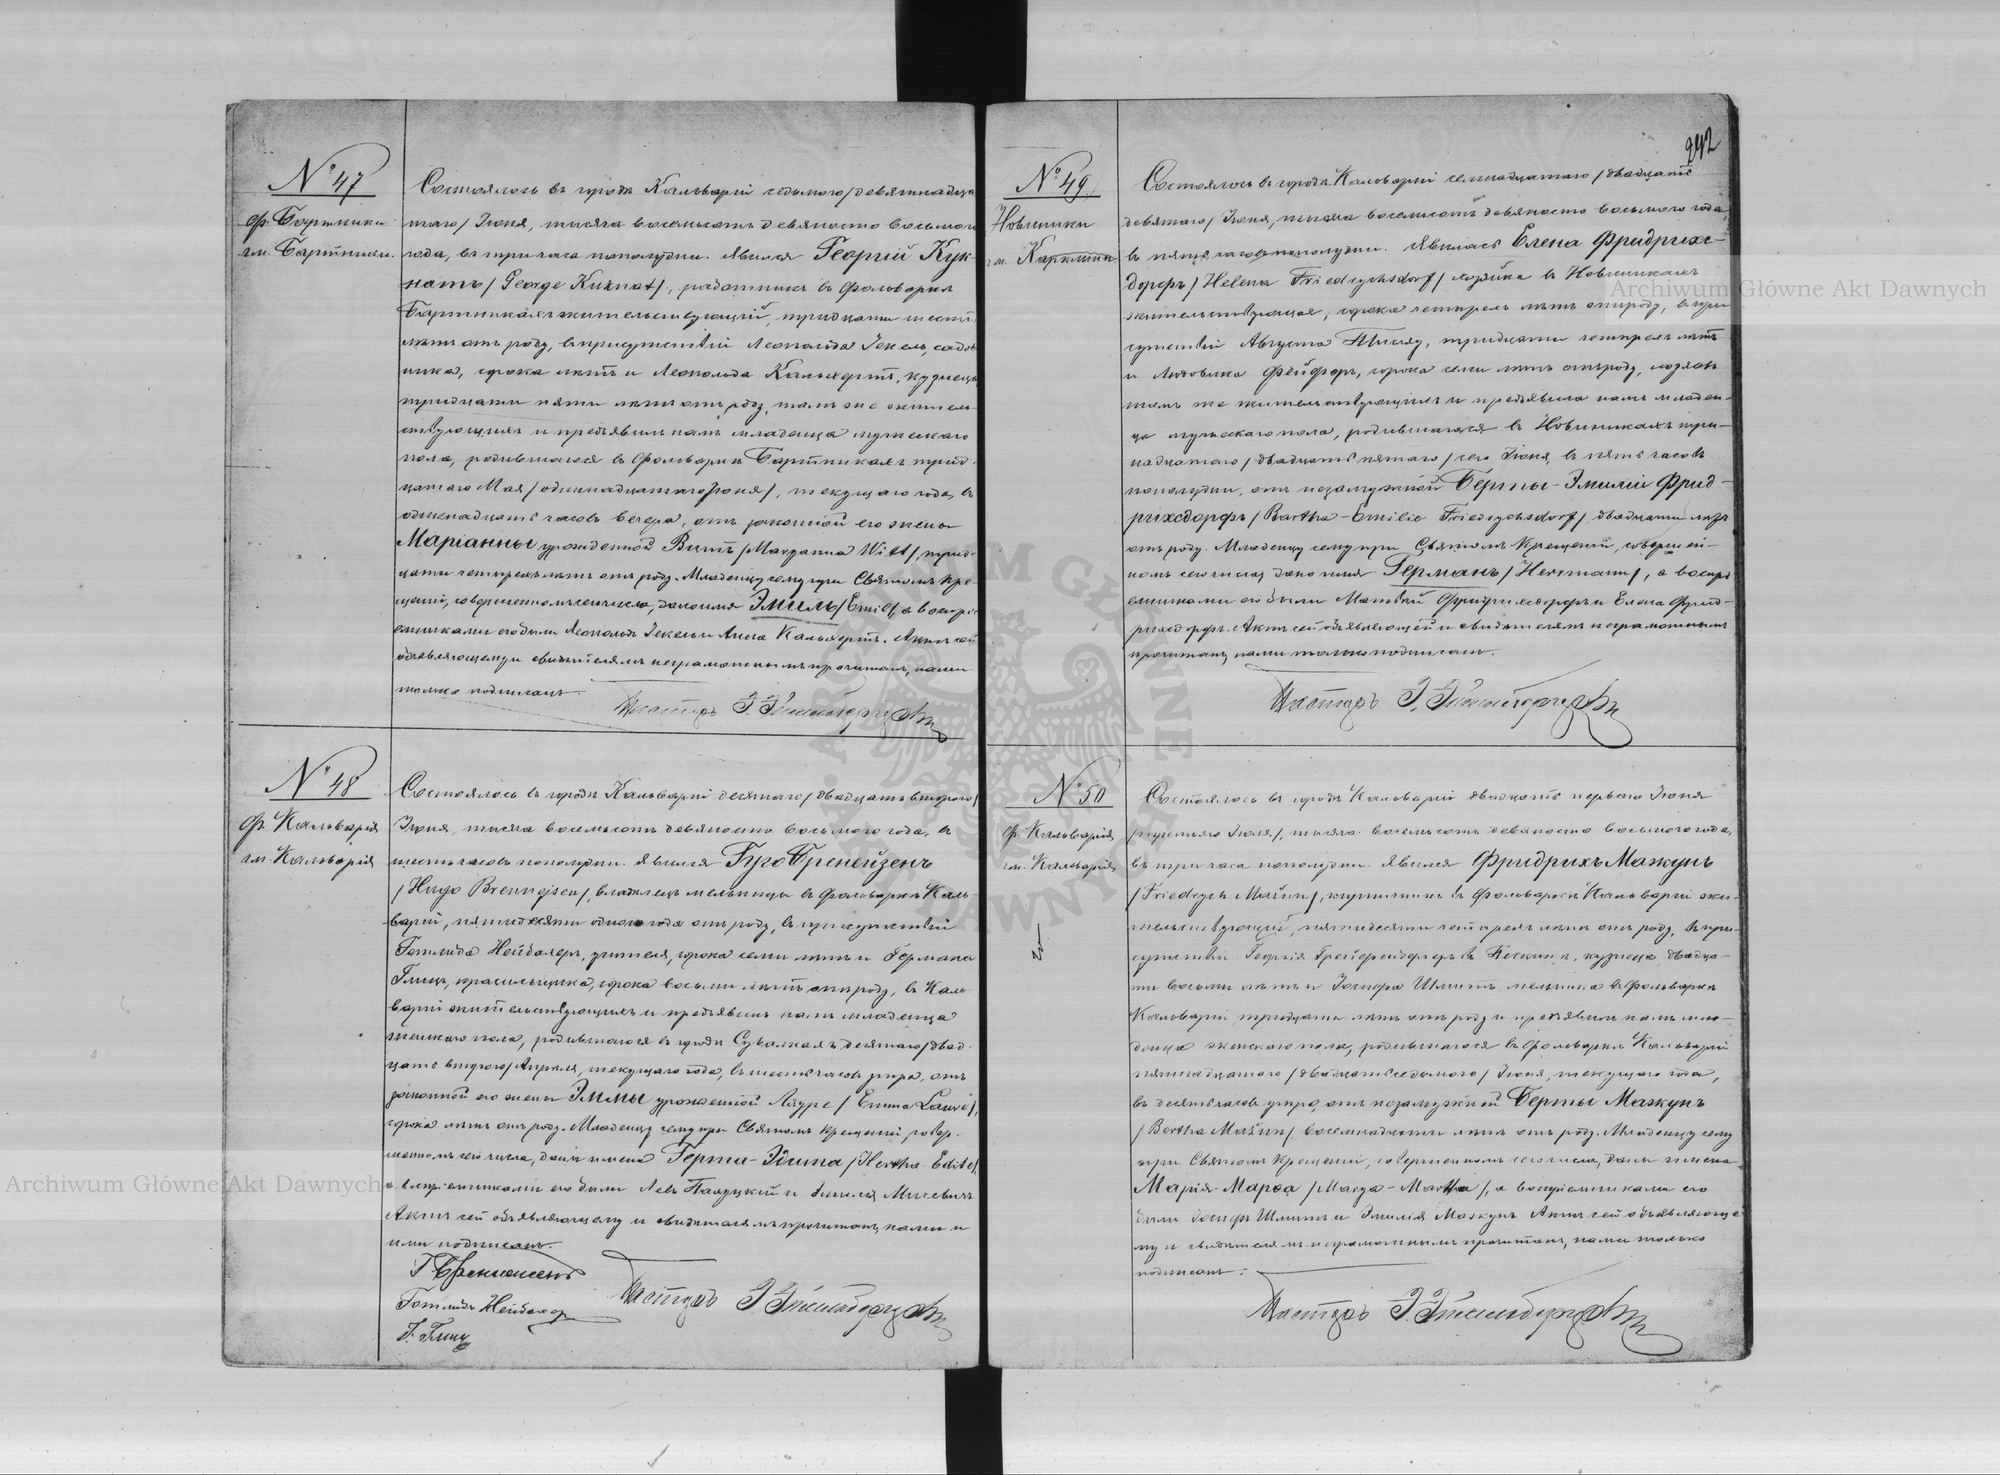 № 47
ф. Бартники
гм. Бартники
Состоялось въ городѣ Кальваріи седьмого/девятнадца
таго/ Іюня, тысяча восемьсотъ девяносто восьмого
года, въ три часа пополудни. Явился Георгій Кук-
натъ /George Kuknat/, работникъ въ Фольваркѣ
Бартникахъ жительствующій, тридцати шести
лѣтъ отъ роду, въ присутствіи Леопольда Іекель, садов
ника, сорока лѣтъ и Леопольда Кальхертъ, кузнеца
тридцати пяти лѣтъ отъ роду, тамъ же житель-
ствующихъ и предъявилъ намъ младенца мужескаго
пола, родившагося въ Фольваркѣ Бартникахъ трид-
цатаго Мая/одиннадцатаго Іюня/, текущаго года, въ
одиннадцать часовъ вечера, отъ законной его жены
Маріанны урожденной Витъ /Maryanna Witt/, трид-
цати четырехъ лѣтъ отъ роду. Младенцу сему при Святомъ Кре-
щеніи, совершенномъ сего числа, дано имя Эмиль /Emil/, а воспрі-
емниками его были Леопольдъ Іекель и Анна Кальхертъ. Актъ сей
объявляющему и свидѣтелямъ неграмотнымъ прочитанъ, нами
только подписанъ.
Пасторъ
№ 48
ф. Кальварія
гм. Кальварія
Состоялось въ городѣ Кальваріи десятаго/двадцать второго/
Іюня, тысяча восемьсотъ девяносто восьмого года, въ
шесть часовъ пополудни. Явился Гуго Бренейзенъ
/Hugo Brenneisen/, владѣлецъ мельницы въ Фольваркѣ Каль
варіи, пятидесяти одного года отъ роду, въ присутствіи
Готлиба Нейбахеръ, учителя, сорока семи лѣтъ и Германа
Глицъ, красильщика, сорока восьми лѣтъ отъ роду, въ Каль
варіи жительствующихъ и предъявилъ намъ младенца
женскаго пола, родившагося въ городѣ Сувалкахъ десятаго/двад-
цать второго/Апрѣля, текущаго года, въ шесть часовъ утра, отъ
законной его жены Эммы урожденной Лауре /Emma Laure/,
сорока лѣтъ отъ роду. Младенцу сему при Святомъ Крещеніи, совер-
шенномъ сего числа, даны имена Герта-Эдита /Hertha-Edite/,
а воспріемниками его были Левъ и Эмилія
Актъ сей объявляющему и свидѣтелямъ прочитанъ, нами и
ими подписанъ.
Г. Бренейзенъ
Готлибъ Нейбахеръ
Г. Глицъ
Пасторъ
242
№ 49
Новиники
гм. Карклини
Состоялось въ городѣ Кальваріи семнадцатаго/двадцать
девятаго/ Іюня, тысяча восемьсотъ девяносто восьмого года,
въ пять часовъ пополудни. Явилась Елена Фридрихс-
дорфъ /Helena Friedrychsdorf/ хозяйка въ Новиникахъ
жительствующая, сорока четырехъ лѣтъ отъ роду, въ при
сутствіи Августа, тридцати четырехъ лѣтъ
и Людовика Фейферъ, сорока семи лѣтъ отъ роду, хозяевъ
тамъ же жительствующихъ и предъявила намъ младен-
ца мужескаго пола, родившагося въ Новиникахъ три-
надцатаго/двадцать пятаго/ сего Іюня, въ пять часовъ
пополудни, отъ незамужней Берты-Эмиліи Фрид-
рихсдорфъ /Bertha-Emilie Friedrychsdorf/ двадцати лѣтъ
отъ роду. Младенцу сему при Святомъ Крещеніи, соверше-
номъ сего числа, дано имя Германъ /Hermann/, а воспрі
емниками его были Матвѣй Фридрихсдорфъ и Елена Фрид-
рихсдорфъ. Актъ сей объявляющей и свидѣтелямъ неграмотнымъ
прочитанъ, нами только подписанъ.
Пасторъ
№ 50
ф. Кальварія
гм. Кальварія
Состоялось въ городѣ Кальваріи двадцать перваго Іюня
/третьяго Іюля/, тысяча восемьсотъ девяносто восьмого года,
въ три часа пополудни. Явился Фридрихъ Мажунъ
/Friedrych Mažun/, въ Фольваркѣ Кальваріи жи-
тельствующій, пятидесяти четырехъ лѣтъ отъ роду, въ при-
сутствіи Георгія, кузнеца двадца-
ти восьми лѣтъ и Іосифа Шмитъ мельника въ Фольваркѣ
Кальваріи тридцати лѣтъ отъ роду и предъявилъ намъ мла-
денца женскаго пола, родившагося въ Фольваркѣ Кальваріи
пятнадцатаго/двадцать седьмого/ Іюня, текущаго года,
въ десять часовъ утра, отъ незамужней Берты Мажунъ
/Bertha Mažun/ восемнадцати лѣтъ отъ роду. Младенцу сему
при Святомъ Крещеніи, совершенномъ сего числа, даны имена
Марія-Марѳа /Marya-Martha/, а воспріемниками его
были Іосифъ Шмитъ и Эмилія Мажунъ Актъ сей объявляюще-
му и свидѣтелямъ неграмотнымъ прочитанъ, нами только
подписанъ.
Пасторъ
Archiwum Główne Akt Dawnych
Archiwum Główne Akt Dawnych
ARCHIWUM GŁÓWNE AKT DAWNYCH